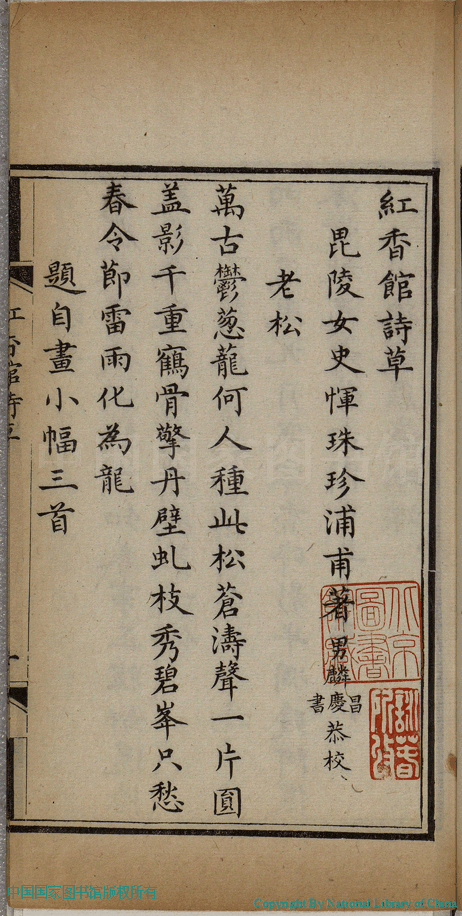 紅香館詩草
毘陵女史惲珠珍浦甫著 男麟慶 昌書 恭校
老松
萬古鬱葱龍何人種此松蒼濤聲一片圓
盖影千重鶴骨擎丹壁虬枝秀碧峯只愁
春令節雷雨化為龍
題自畫小幅三首
紅香館詩草
一
北京圖書館藏
中国国家图书馆版权所有
Copyright By National Library of China